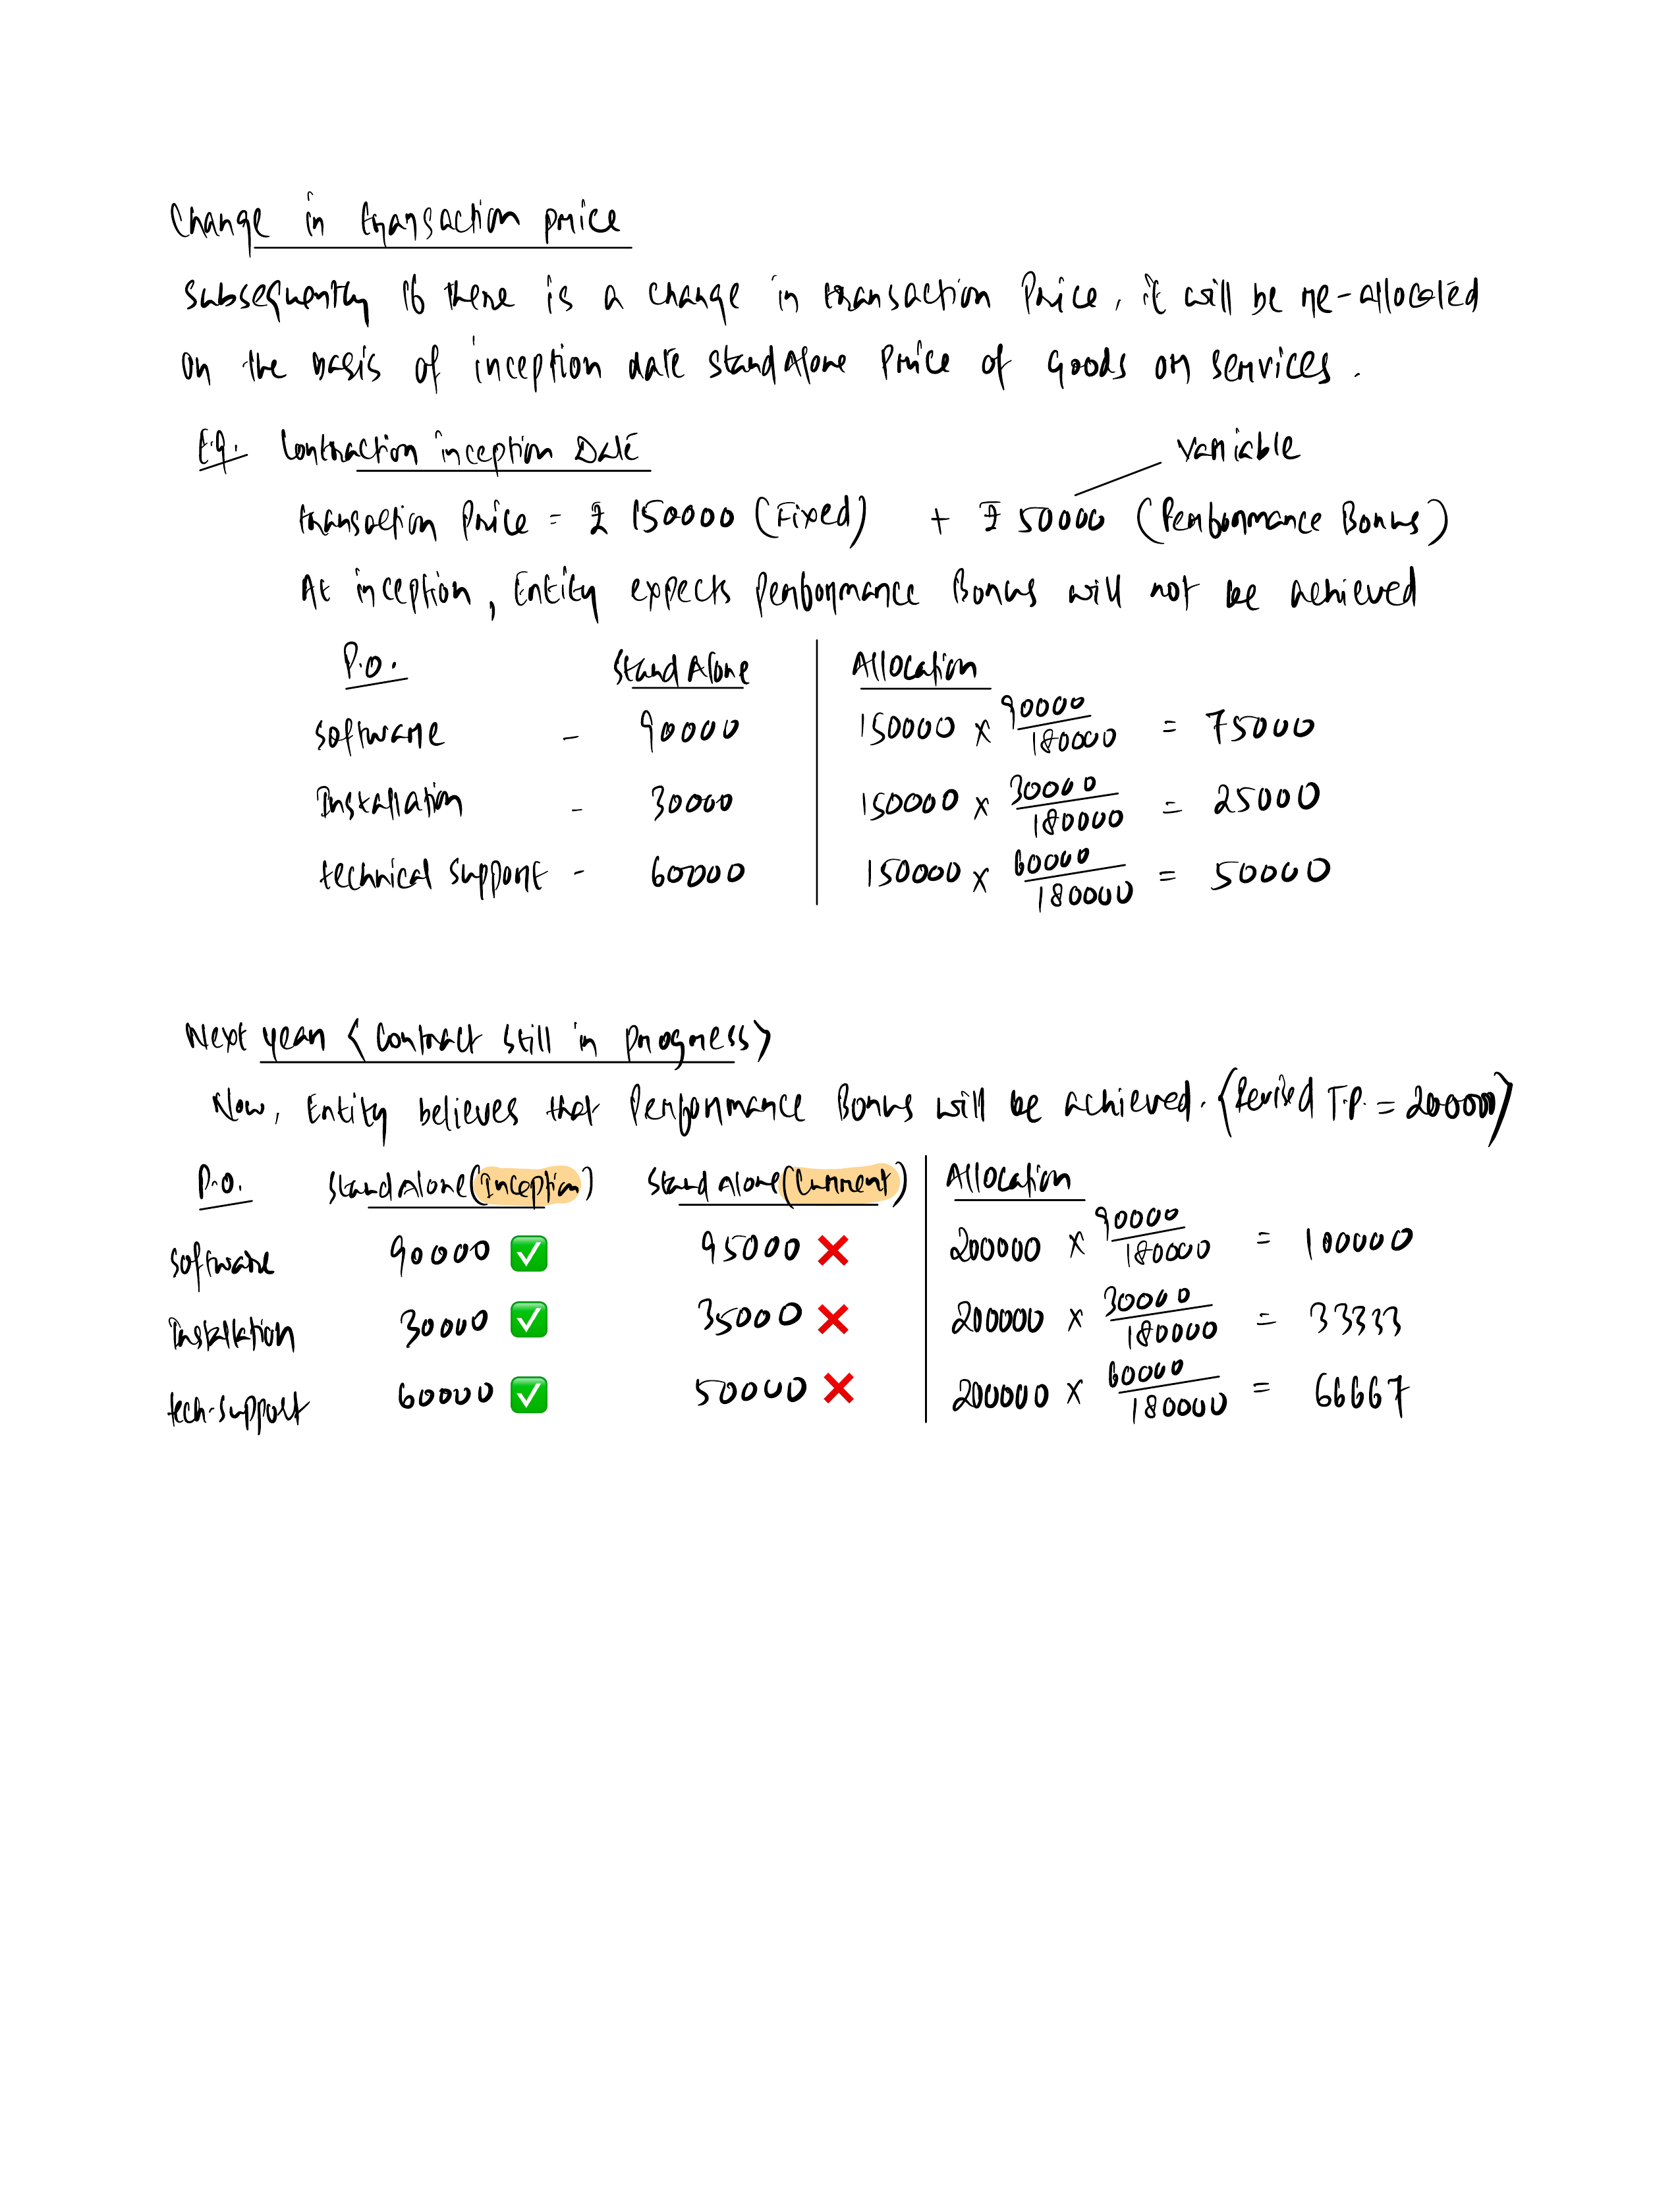 Change in transaction price
Subsequently if there is a change in transaction Price, it will be re-allocated
on the basis of inception date standAlone Price of Goods or services.
Eg. Contraction inception Date
variable
transaction Price = ₹ 150000 (Fixed) + ₹ 50000 (Performance Bonus)
At inception, Entity expects performance Bonus will not be achieved
P.O. StandAlone Allocation
software - 90000 150000 × 90000/180000 = 75000
Installation - 30000 150000 × 30000/180000 = 25000
technical support - 60000 150000 × 60000/180000 = 50000
Next year < Contract still in progress >
Now, Entity believes that Performance Bonus will be achieved. (Revised T.P. = 200000)
P.O. Standalone (Inception) Stand alone (Current) Allocation
software 90000 ✅ 95000 ❌ 200000 × 90000/180000 = 100000
Installation 30000 ✅ 35000 ❌ 200000 × 30000/180000 = 33333
tech-support 60000 ✅ 50000 ❌ 200000 × 60000/180000 = 66667